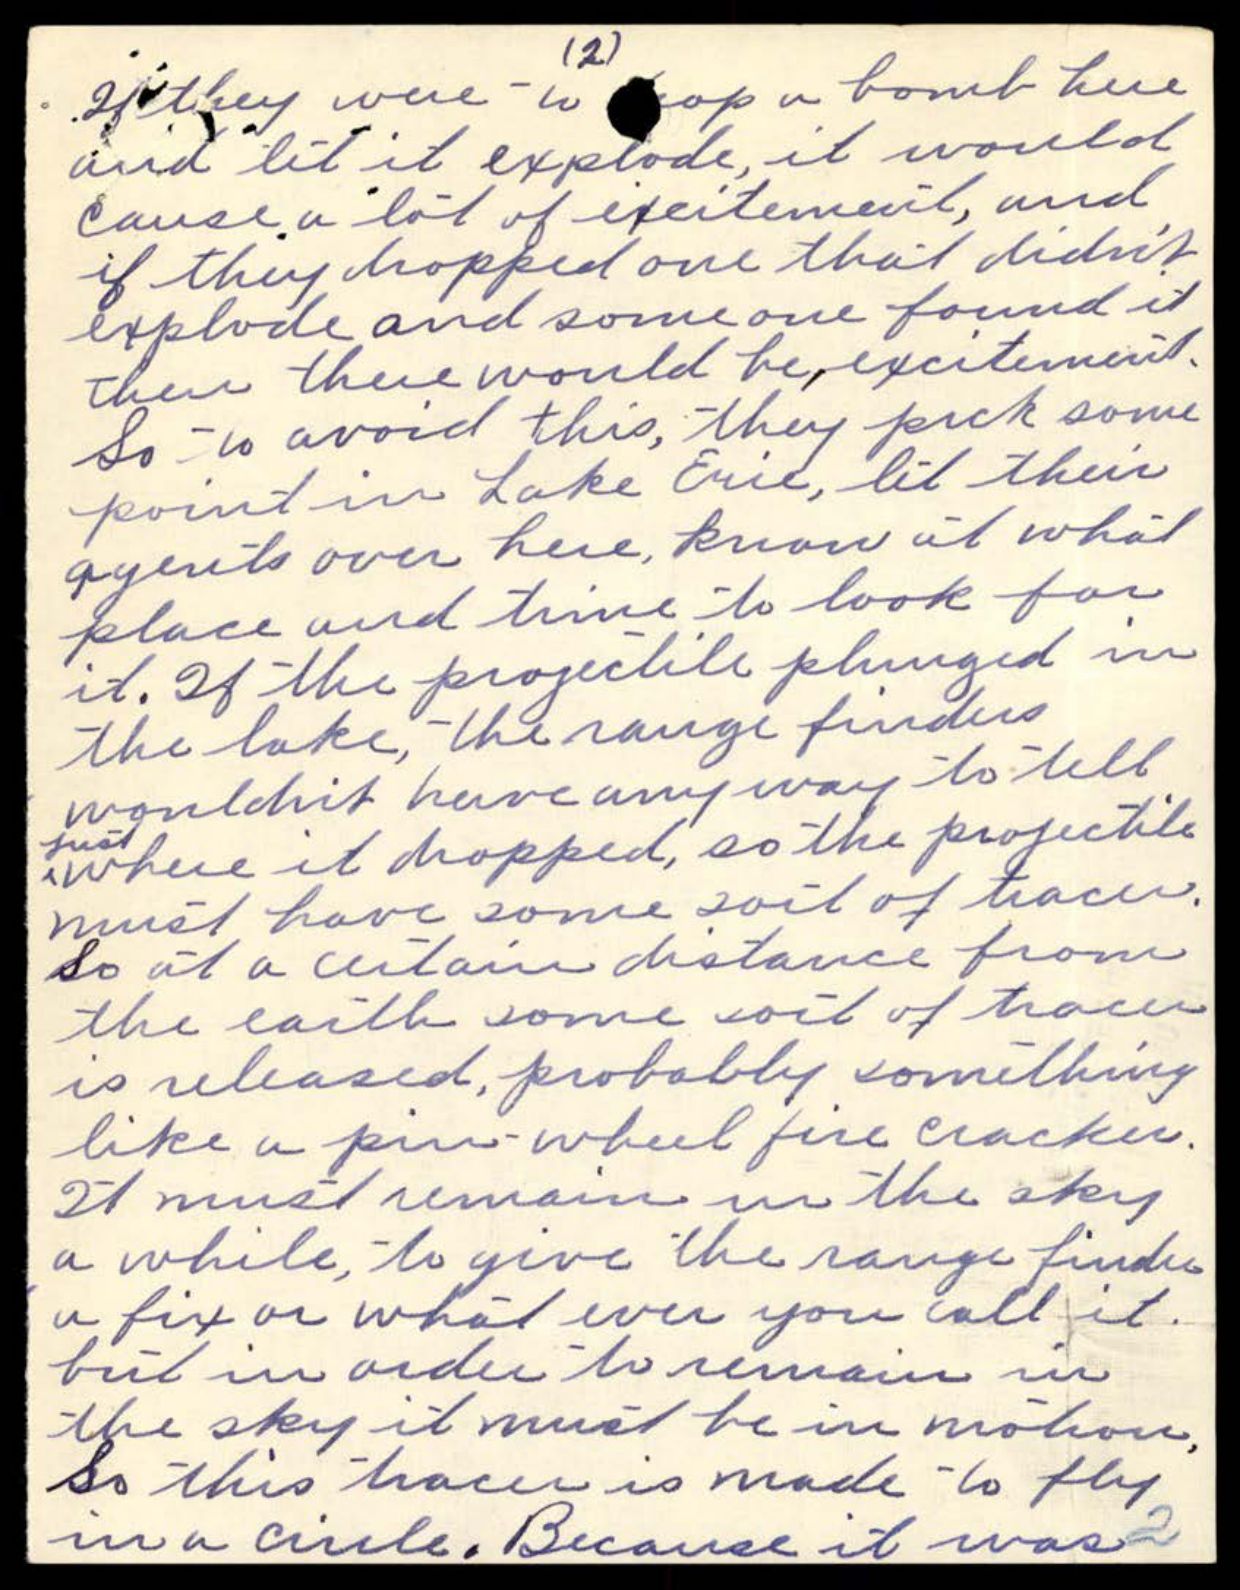 (2)
If they were to drop a bomb here
and let it explode, it would
cause a lot of excitement, and
if they dropped one that didn't
explode and someone found it
then there would be, excitement.
So to avoid this, they pick some
point in Lake Erie, let their
agents over here, know at what
place and time to look for
it. If the projectile plunged in
the lake, the range finders
wouldn't have any way to tell
just
where it dropped, so the projectile
must have some sort of tracer.
So at a certain distance from
the earth some sort of tracer
is released, probably something
like a pin-wheel fire cracker.
It must remain in the sky
a while, to give the range finder
a fix or what ever you call it.
but in order to remain in
the sky it must be in motion,
So this tracer is made to fly
in a circle. Because it was 2